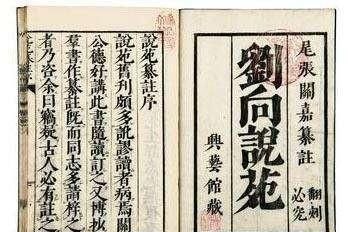 尾張關嘉纂註
翻刻
必究
劉向說苑
興藝館藏
說苑纂註序
說苑舊刊頗多訛謬讀者病焉關
公德好講此書隨讀訂之又博抄
羣書作纂註既而同志多請梓之
者乃咨余曰竊疑古人必有註之